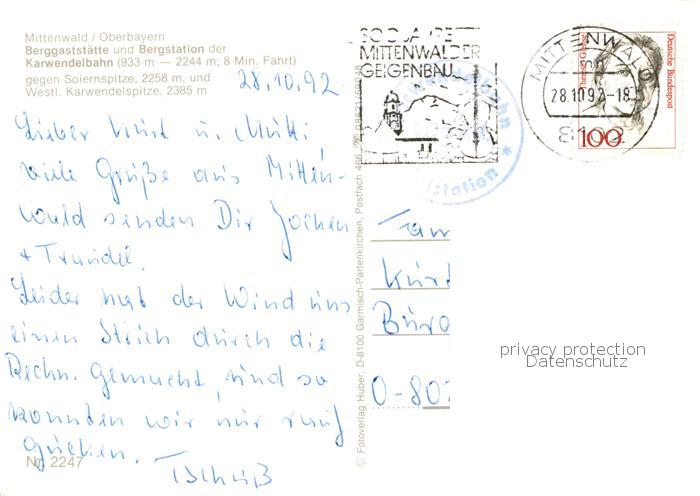 Mittenwald / Oberbayern
Berggaststätte und Bergstation der
Karwendelbahn (933 m — 2244 m; 8 Min. Fahrt)
gegen Soiernspitze, 2258 m, und
Westl. Karwendelspitze, 2385 m
28.10.92
Lieber Kurt u. Mutti
viele Grüße aus Mitten-
wald senden Dir Jochen
+ Traudel.
Leider hat der Wind uns
einen Strich durch die
Rechn. gemacht, und so
konnten wir nur rauf
gucken.
Tschüß
Nr. 2247
© Fotoverlag Huber, D-8100 Garmisch-Partenkirchen, Postfach 466
300 JAHRE
MITTENWALDER
GEIGENBAU
MITTENWALD
28.10.92-18
8102
Deutsche Bundespost
100
station
Fam
Kurt
Büro
O-80
privacy protection
Datenschutz